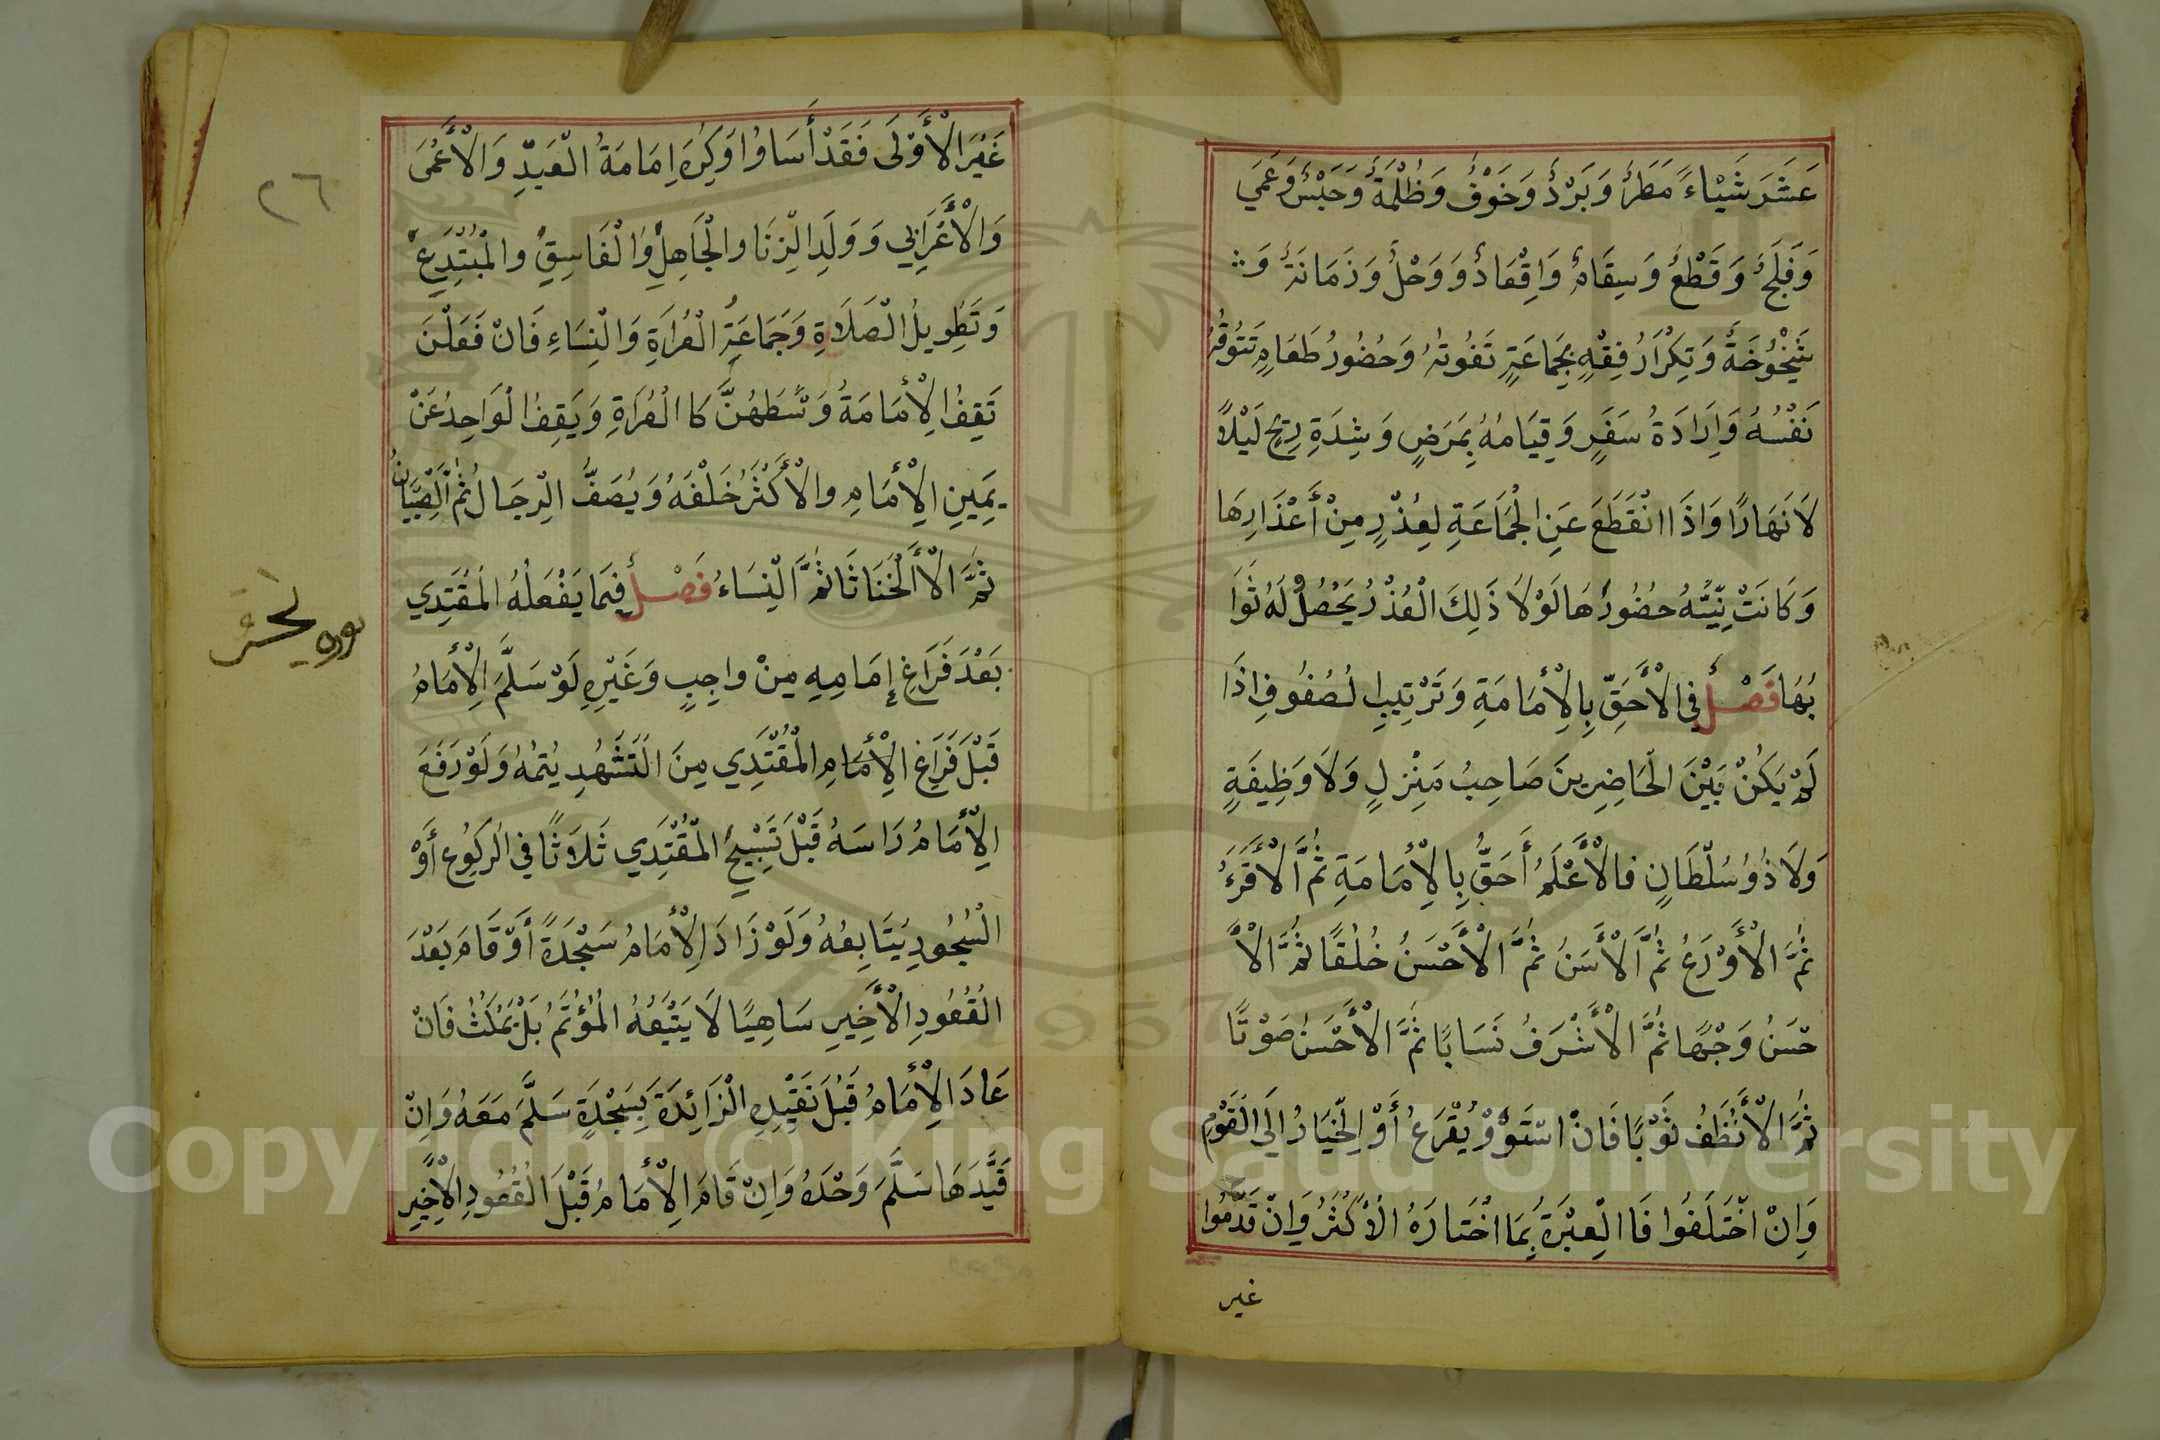 عَشَرَ شَيْاءً مَطَرٌ وَبَرْدٌ وَخَوْفٌ وَظُلْمَةٌ وَحَبْسٌ وَعَمَي
وَفَلَجٌ وَقَطْعٌ وَسِقَامٌ وَاِقْعَادٌ وَوَحْلٌ وَزَمَانَةٌ وَ
شَيْخُوْخَةٌ وَتِكْرَارُ فِقْهٍ بِجَمَاعَةٍ تَفُوتُهُ وَحُضُورُ طَعَامٍ تَتُوقُهُ
نَفْسُهُ وَاِرَادَةُ سَفَرٍ وَقِيَامُهُ بِمَرَضٍ وَشِدَةِ رِيحٍ لَيْلًا
لَا نَهَارًا وَاِذَا انْقَطَعَ عَنِ الْجَمَاعَةِ لِعُذْرٍ مِنْ أَعْذَارِهَا
وَكَانَتْ نِيَّتُهُ حُضُورُهَا لَوْلَا ذَلِكَ الْعُذْرُ يَحْصُلُ لَهُ ثَوَا
بُهَا فَصْلٌ فِي الْأَحَقِّ بِالْإِمَامَةِ وَتَرْتِيبِ لصُفُوفِ اِذَا
لَمْ يَكُنْ بَيْنَ الْحَاضِرِينَ صَاحِبُ مَنْزِلٍ وَلَا وَظِيفَةٍ
وَلَا ذُو سُلْطَانٍ فالْأَعْلَمُ أَحَقُّ بِالْإِمَامَةِ ثُمَّ الْأَقْرَءُ
ثُمَّ الْأَوْرَعُ ثُمَّ الْأَسَنُ ثُمَّ الْأَحْسَنُ خُلُقًا ثُمَّ الْأَ
حْسَنُ وَجْهًا ثُمَّ الْأَشْرَفُ نَسَابًا ثُمَّ الْأَحْسَنُ صَوْتًا
ثُمَّ الْأَنْظَفُ ثَوْبًا فَاِنْ اسْتَوَوْ يُقْرَعُ أَوْ الْخِيَارُ اِلَى الْقَوْمِ
وَاِنْ اخْتَلَفُوا فَاالْعِبْرَةُ بِمَا اخْتَارَهُ الْأَكْثَرُ وَاِنْ قَدَّمُوا
غير
٢٦
غَيْرَ الْأَوْلَى فَقَدْ أَسَاوُا وَكِرَهَ اِمَامَةُ الْعَبْدِ وَالْأَعْمَى
وَالْأَعْرَابِي وَوَلَدِ الزِنَا والْجَاهِلِ وَالْفَاسِقِ والْمُبْتَدِعِ
وَتَطْوِيلُ الْصَلَاةِ وَجَمَاعَةُ الْعُرَاةِ وَالْنِسَاءِ فَاِنْ فَعَلْنَ
تَقِفُ الْإِمَامَةُ وَسَطَهُنَّ كَا الْعُرَاةِ وَيَقِفُ الْوَاحِدُ عَنْ
يَمِينِ الْإِمَامِ والْأَكْثَرُ خَلْفَهُ وَيُصَفُّ الْرِجَالُ ثُمَّ الْصِبْيَانُ
ثُمَّ الْأَلْخَنَاثَا ثُمَّ الْنِسَاءُ فَصْلٌ فِيمَا يَفْعَلُهُ الْمُقْتَدِي
بَعْدَ فَرَاغِ إِمَامِهِ مِنْ واجِبٍ وَغَيْرِهِ لَوْ سَلَّمَ الْإِمَامُ
قَبْلَ فَرَاغِ الْإِمَامِ الْمُقْتَدِي مِنَ الْتَشَهُدِ يُتِمُهُ وَلَوْ رَفَعَ
الْإِمَامُ رَاسَهُ قَبْلَ تَسْبِيحٍ الْمُقْتَدِي ثَلَاثًا فِي الْرَكُوعِ أَوْ
الْسُجُودِ يَتَابِعُهُ وَلَوْ زَادَ الْإِمَامُ سَجْدَةً أَوْ قَامَ بَعْدَ
الْقُعُودِ الْأَخِيرِ سَاهِيًا لَا يَتْبَعُهُ الْمُؤْتَمُ بَلْ يَمْكُثُ فَاِنْ
عَادَ الْإِمَامُ قَبْلَ تَقْيِيْدِهِ الْزَائِدَةَ بِسَجْدَةٍ سَلَّمَ مَعَهُ وَاِنْ
قَيَّدَهَا سَلَّمَ وَحْدَهُ وَاِنْ قَامَ الْإِمَامُ قَبْلَ الْقُعُودِ الْأَخِيرِ
1957
Copyright © King Saud University